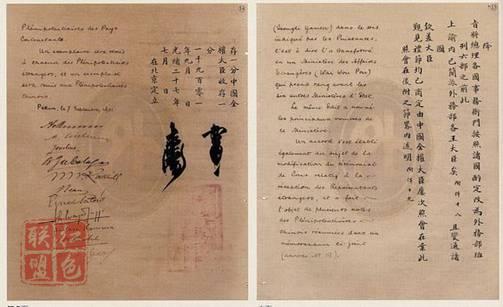 Plénipotentiaires des Pays
Contractants.
Un exemplaire sera remis
à chacun des Plénipotentiaires
étrangers, et un exemplaire
sera remis aux Plénipotentiaires
chinois.
Pékin, le 7 Septembre 1901
存一分中國全
權大臣收存一
分
一千九百零一
光緒二十七年
七月
在北京定立
红色
联盟
(Tsungli Yamen) dans le sens
indiqué par les Puissances,
c'est à dire l'a transformé
en un Ministère des Affaires
Etrangères (Wai Wou Pou)
qui prend rang avant les
six autres Ministères d'Etat.
Le même Edit a nommé
les principaux membres de
ce Ministère.
Un accord s'est établi
également au sujet de la
modification du cérémonial
de Cour relatif à la
réception des Représentants
étrangers, et a fait
l'objet de plusieurs notes
des Plénipotentiaires
chinois résumées dans un
mémorandum ci-joint
(annexe N° 19).
降
旨將總理各國事務衙門按照諸國酌定改為外務部班
列六部之前此
上諭內已簡派外務部各王大臣矣附件十八且變通諸
國
欽差大臣
覲見禮節均已商定由中國全權大臣屢次照會在案此
照會在後附之節畧內述明附件十九